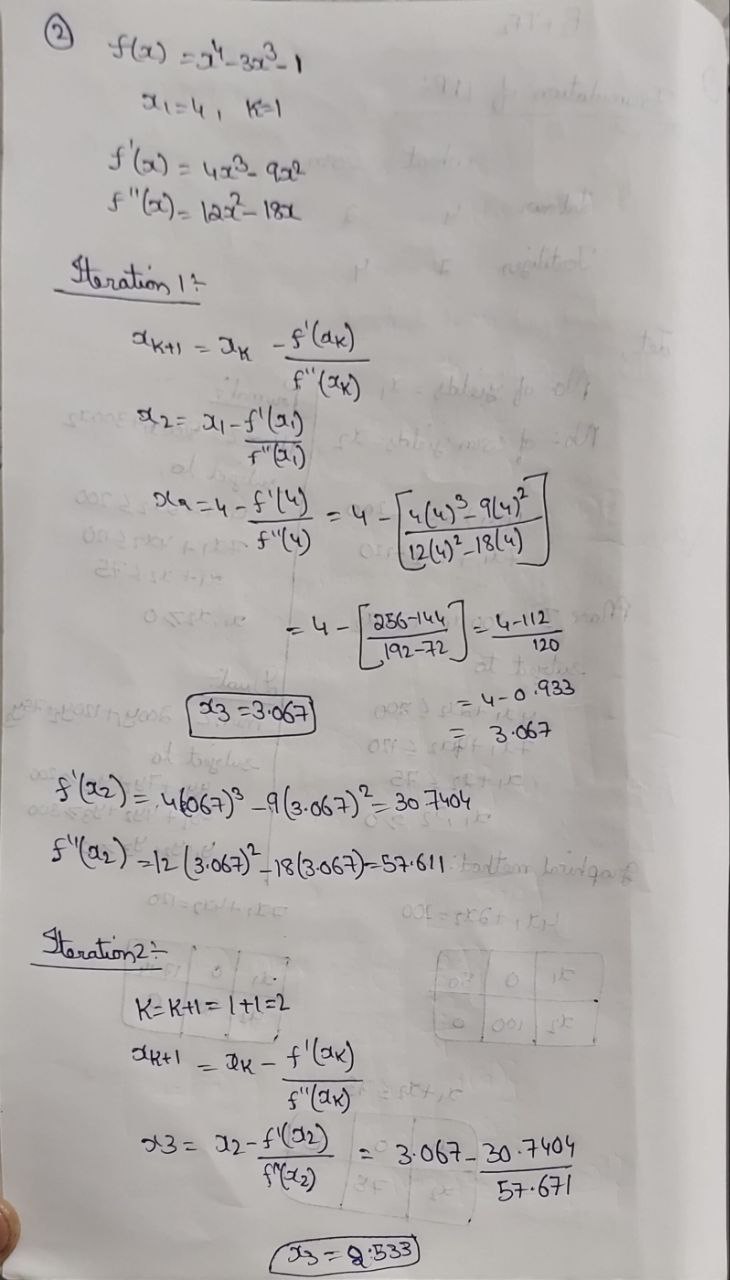 ②
f(x) = x⁴ - 3x³ - 1
x₁ = 4, K=1
f'(x) = 4x³ - 9x²
f''(x) = 12x² - 18x
Iteration 1:-
xK+1 = xK - f'(xK) / f''(xK)
x2 = x1 - f'(x1) / f''(x1)
x2 = 4 - f'(4) / f''(4) = 4 - [4(4)³ - 9(4)² / 12(4)² - 18(4)]
= 4 - [256-144 / 192-72] = 4-112 / 120
= 4 - 0.933
x3 = 3.067
= 3.067
f'(x2) = 4(067)³ - 9(3.067)² = 30.7404
f''(x2) = 12(3.067)² - 18(3.067) = 57.611
Iteration 2:-
K = K+1 = 1+1 = 2
xK+1 = xK - f'(xK) / f''(xK)
x3 = x2 - f'(x2) / f''(x2) = 3.067 - 30.7404 / 57.671
x3 = 2.533